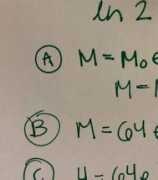 ln 2
Ⓐ M = M₀e
M =
Ⓑ M = 64e
Ⓒ M = 64e